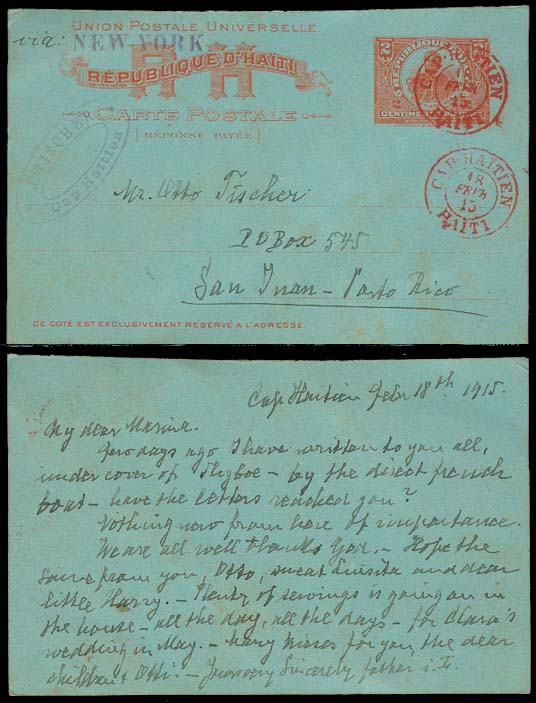 UNION POSTALE UNIVERSELLE.
via: NEW YORK
RH
RÉPUBLIQUE D'HAÏTI
CARTE POSTALE
(RÉPONSE PAYÉE)
2
CENTIMES
CAP-HAÏTIEN
FEVR
15
HAÏTI
CAP-HAÏTIEN
18
FEVR
15
HAÏTI
Cap Haïtien
Mr. Otto Fischer
POBox 545
San Juan - Porto Rico
CE COTÉ EST EXCLUSIVEMENT RÉSERVÉ A L'ADRESSE.
Cap Haïtien febr 18th 1915.
My dear
Two days ago I have written to you all,
under cover of - by the direct french
boat - have the letters reached you?
Nothing new from here of importance.
We are all well thanks God. - Hope the
same from you, Otto, sweat Luisita and dear
little Harry. - Plenty of sewings is going on in
the house - all the day, all the days - for Clara's
wedding in May. - Many kisses for you, the dear
children & Otti. - Yours very sincerely father i. L.